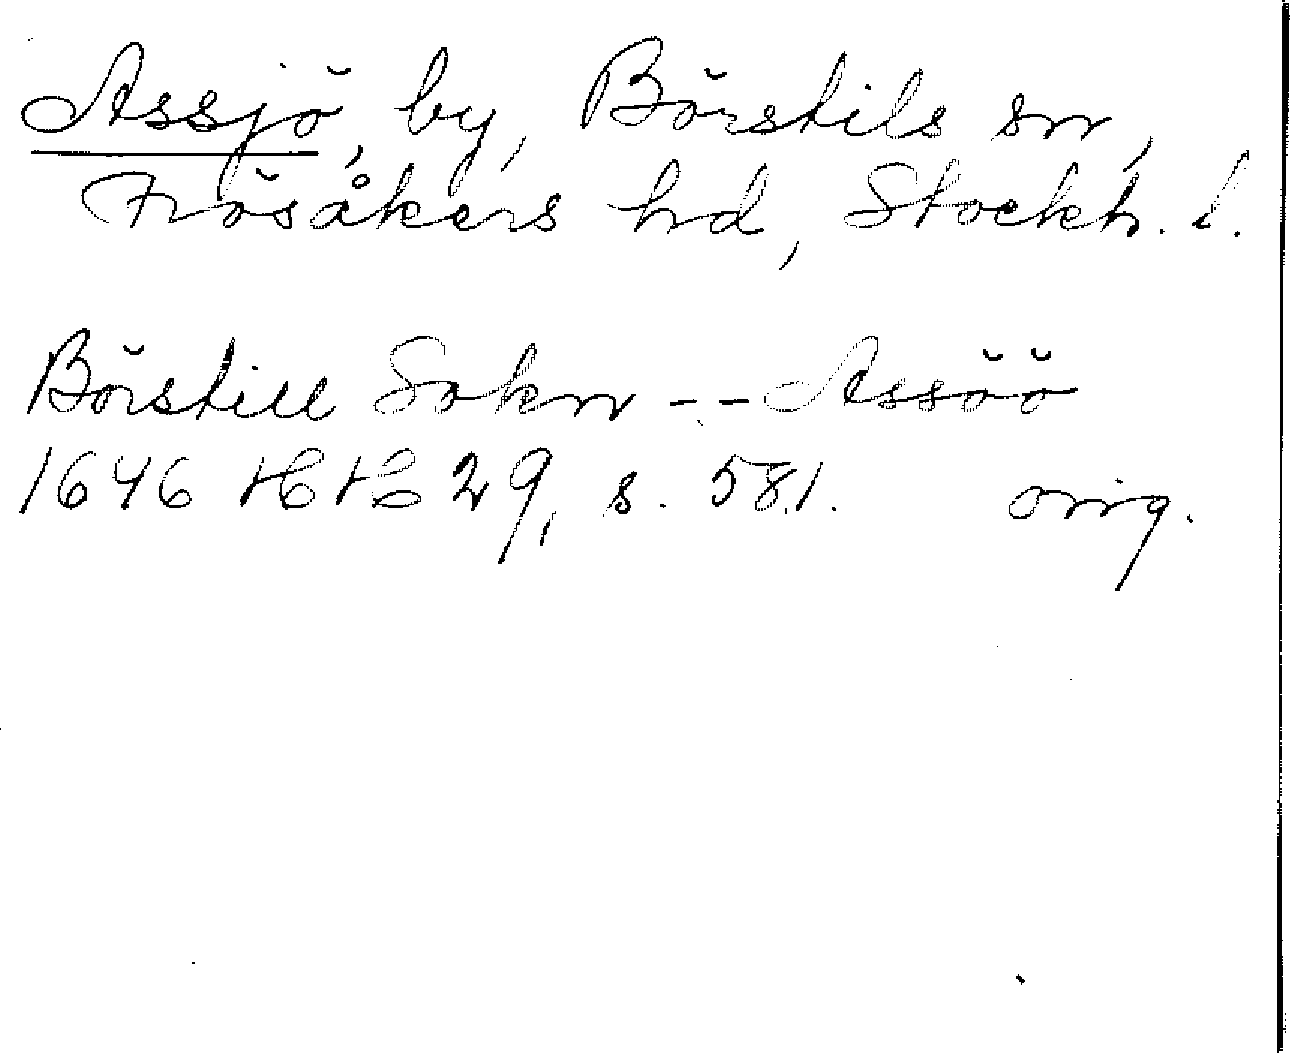 Assjö, by, Börstils sn,
Frösåkers hd, Stockh. l.
Börstill Sokn -- Assöö
1646 HH 29, s. 581. orig.